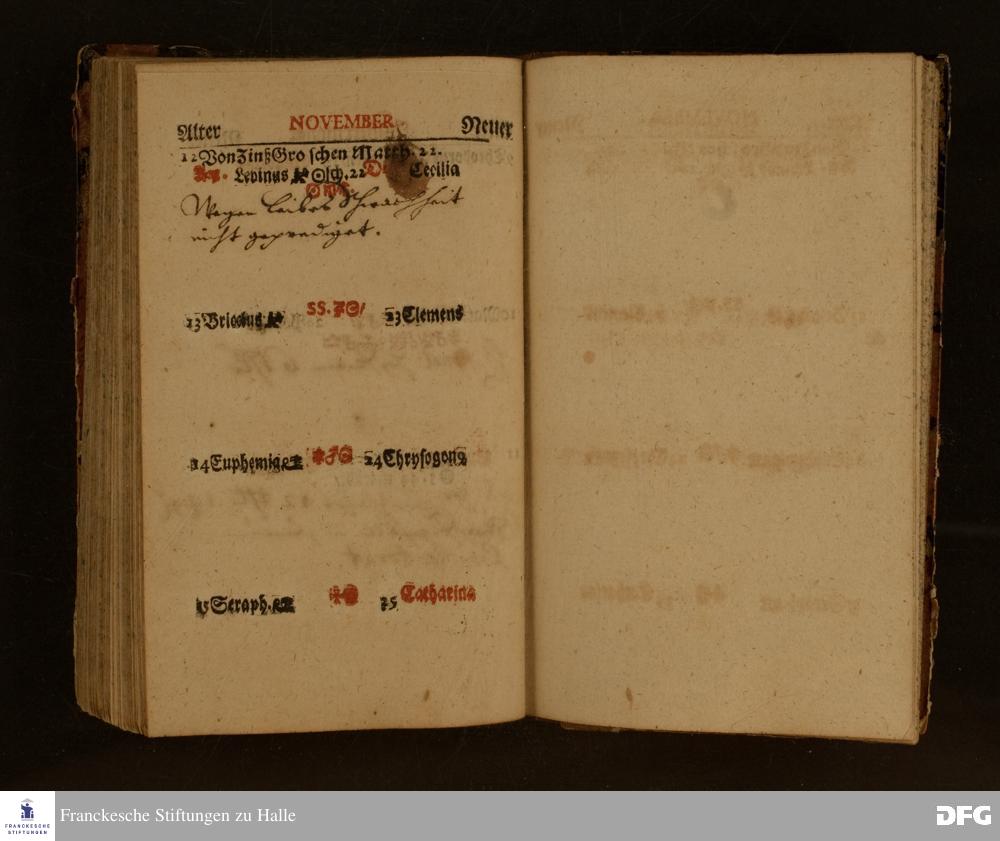 Alter NOVEMBER. Neuer
12 Von Zinß Groschen Matth. 22.
Lepinus ☉ sch. 22 Cecilia
Wegen Leibes Schwachheit
nicht geprediget.
13 Brictius 23 Clemens
14 Euphemia 24 Chrysogon9
15 Seraph. 25 Catharina
FRANCKESCHE
STIFTUNGEN
Franckesche Stiftungen zu Halle
DFG